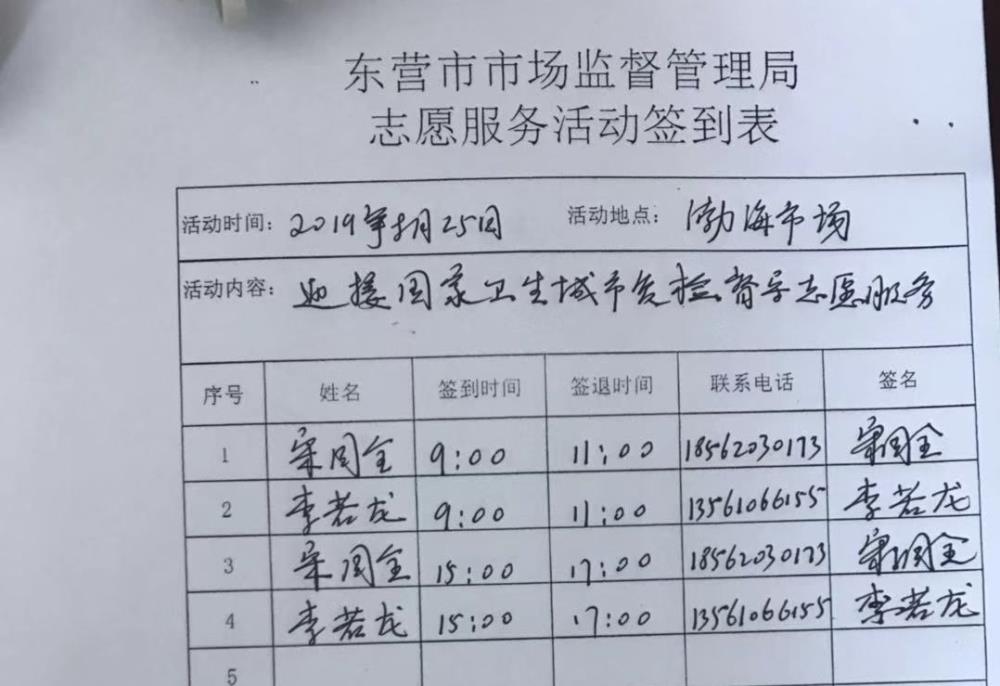 东营市市场监督管理局
志愿服务活动签到表
活动时间：2019年8月25日 活动地点：渤海市场
活动内容：迎接国家卫生城市复检督导志愿服务
序号 姓名 签到时间 签退时间 联系电话 签名
1 宋国全 9:00 11:00 18562030173 宋国全
2 李若龙 9:00 11:00 13561066155 李若龙
3 宋国全 15:00 17:00 18562030173 宋国全
4 李若龙 15:00 17:00 13561066155 李若龙
5